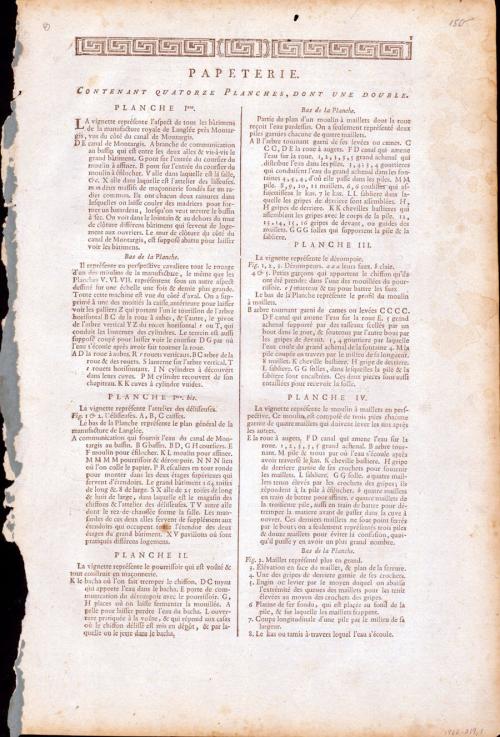 150
1
PAPETERIE.
CONTENANT QUATORZE PLANCHES, DONT UNE DOUBLE.
PLANCHE Iere.
LA vignette représente l'aspect de tous les bâtimens
de la manufacture royale de Langlée près Montar-
gis, vus du côté du canal de Montargis.
DE canal de Montargis. A branche de communication
au bassin qui est entre les deux ailes & vis-à-vis le
grand bâtiment. G pont sur l'entrée du coursier du
moulin à affiner. B pont sur l'entrée du coursier du
moulin à éfilocher. V aile dans laquelle est la salle,
&c. X aile dans laquelle est l'attelier des délisseuses.
m n deux massifs de maçonnerie fondés sur
dans
lesquelles on laisse couler des madriers pour for-
mer un batardeau, lorsqu'on veut mettre le bassin
à sec. On voit dans le lointain & au-dehors du mur
de clôture différens bâtimens qui servent de loge-
ment aux ouvriers. Le mur de clôture du côté du
canal de Montargis, est supposé abattu pour laisser
voir les bâtimens.
Bas de la Planche.
Il représente en perspective cavaliere tout le rouage
d'un des moulins de la manufacture, le même que les
Planches V. VI. VII. représentent sous un autre aspect
dessiné sur une échelle une fois & demie plus grande.
Toute cette machine est vue du côté d'aval. On a sup-
primé à une des moitiés la cage antérieure pour laisser
voir les palliers Z qui portent l'un le tourillon de l'arbre
horisontal BC de la roue à aubes, & l'autre, le pivot
de l'arbre vertical YZ du rouet horisontal r ou T, qui
conduit les lanternes des cylindres. Le terrein est aussi
supposé coupé pour laisser voir le coursier D G par où
l'eau s'écoule après avoir fait tourner la roue.
A D la roue à aubes. R r rouets verticaux. BC arbre de la
roue & des rouets. S lanterne sur l'arbre vertical, T
r rouets horisontaux. I N cylindres à découvert
dans leurs cuves. P M cylindre recouvert de son
chapiteau. K K cuves à cylindre vuides.
PLANCHE Iere. bis.
La vignette représente l'attelier des délisseuses.
Fig. 1 & 2. Délisseuses. A, B, C caisses.
Le bas de la Planche représente le plan général de la
manufacture de Langlée.
A communication qui fournit l'eau du canal de Mon-
targis au bassin. B G bassin. B D, G H coursiers. E
F moulin pour éfilocher. K L moulin pour affiner.
M M M M pourrissoir & dérompoir. N N N lieu
où l'on colle le papier. P R escaliers en tour ronde
pour monter dans les deux étages supérieurs qui
servent d'étendoirs. Le grand bâtiment a 64 toises
de long & 8 de large. S X aile de 21 toises de long
& huit de large, dans laquelle est le magasin des
chiffons & l'attelier des délisseuses. T V autre aile
dont le rez-de-chaussée forme la salle. Les man-
sardes de ces deux ailes servent de supplément aux
étendoirs qui occupent toute l'étendue des deux
étages du grand bâtiment. X V pavillons où sont
pratiqués différens logemens.
PLANCHE II.
La vignette représente le pourrissoir qui est voûté &
tout construit en maçonnerie.
K le bacha où l'on fait tremper le chiffon. D C tuyau
qui apporte l'eau dans le bacha. E porte de com-
munication du dérompoir avec le pourrissoir. G,
H places où on laisse fermenter la mouillée. A
pelle pour laisser perdre l'eau du bacha. L ouver-
ture pratiquée à la voûte, & qui répond aux cases
où le chiffon délissé est mis en dépôt, & par la-
quelle on le jette dans le bacha.
Bas de la Planche.
Partie du plan d'un moulin à maillets dont la roue
reçoit l'eau pardessus. On a seulement représenté deux
piles garnies chacune de quatre maillets.
A B l'arbre tournant garni de ses levées ou cames. C
C C, D E la roue à augets. F D canal qui amene
l'eau sur la roue. 1, 2, 3, 5, 5 grand achenal qui
distribue l'eau dans les piles.
qui conduisent l'eau du grand achenal dans les fon-
taines 4, 5, 4, 5, d'où elle passe dans les piles. M M
pile. 8, 9, 10, 11 maillets. 6, 6 coulisses qui as-
sujettissent le kas. 7 le kas. L L sabliere dans la-
quelle les gripes de derriere sont assemblées. H,
H gripes de derriere. K K chevilles bassieres qui
assemblent les gripes avec le corps de la pile. 12,
13, 14, 15, 16 gripes de devant, ou guides des
maillets. G G G solles qui supportent la pile & la
sabliere.
PLANCHE III.
La vignette représente le dérompoir.
Fig. 1, 2, 3. Dérompeurs. a a a leurs faux. b claie.
4 & 5. Petits garçons qui apportent le chiffon qu'ils
ont été prendre dans l'une des mouillées du pour-
rissoir.
Le bas de la Planche représente le profil du moulin
à maillets.
B arbre tournant garni de cames ou levées C C C C.
D F canal qui amene l'eau sur la roue E. 3 grand
achenal supporté par des tasseaux scellés par un
bout dans le mur, & soutenus par l'autre bout par
les gripes de devant. 3, 4 gouttiere par laquelle
l'eau coule du grand achenal de la fontaine 4. M M
pile coupée en travers par le milieu de sa longueur.
8 maillet. K cheville bassiere. H gripe de derriere.
L sabliere. G G solles, dans lesquelles la pile & la
sabliere sont encastrées. Ces deux pieces sont aussi
entaillées pour recevoir la solle.
PLANCHE IV.
La vignette représente le moulin à maillets en pers-
pective. Ce moulin est composé de trois piles chacune
garnie de quatre maillets qui doivent lever les uns après
les autres.
E la roue à augets. F D canal qui amene l'eau sur la
roue. 1, 2, 3, 5, 5 grand achenal. B arbre tour-
nant. M pile & trous par où l'eau s'écoule après
avoir traversé le kas. K cheville bassiere. H gripe
de derriere garnie de ses crochets pour soutenir
les maillets. L sabliere. G G solle. a quatre mail-
lets tenus élevés par les crochets des gripes; ils
répondent à la pile à éfilocher. b quatre maillets
en train de battre pour affiner. c quatre maillets de
la troisieme pile, aussi en train de battre pour dé-
tremper la matiere avant de passer dans la cuve à
ouvrer. Ces derniers maillets ne sont point ferrés
par le bout; on a seulement représenté trois piles
& douze maillets pour éviter la confusion, quoi-
qu'il puisse y en avoir un plus grand nombre.
Bas de la Planche.
Fig. 2. Maillet représenté plus en grand.
3. Elévation en face du maillet, & plan de la serrure.
4. Une des gripes de derriere garnie de ses crochets.
5. Engin ou levier par le moyen duquel on abaisse
l'extrémité des queues des maillets pour les tenir
élevées au moyen des crochets des gripes.
6 Platine de fer fondu, qui est placée au fond de la
pile, & sur laquelle les maillets frappent.
7. Coupe longitudinale d'une pile par le milieu de sa
largeur.
8. Le kas ou tamis à-travers lequel l'eau s'écoule.